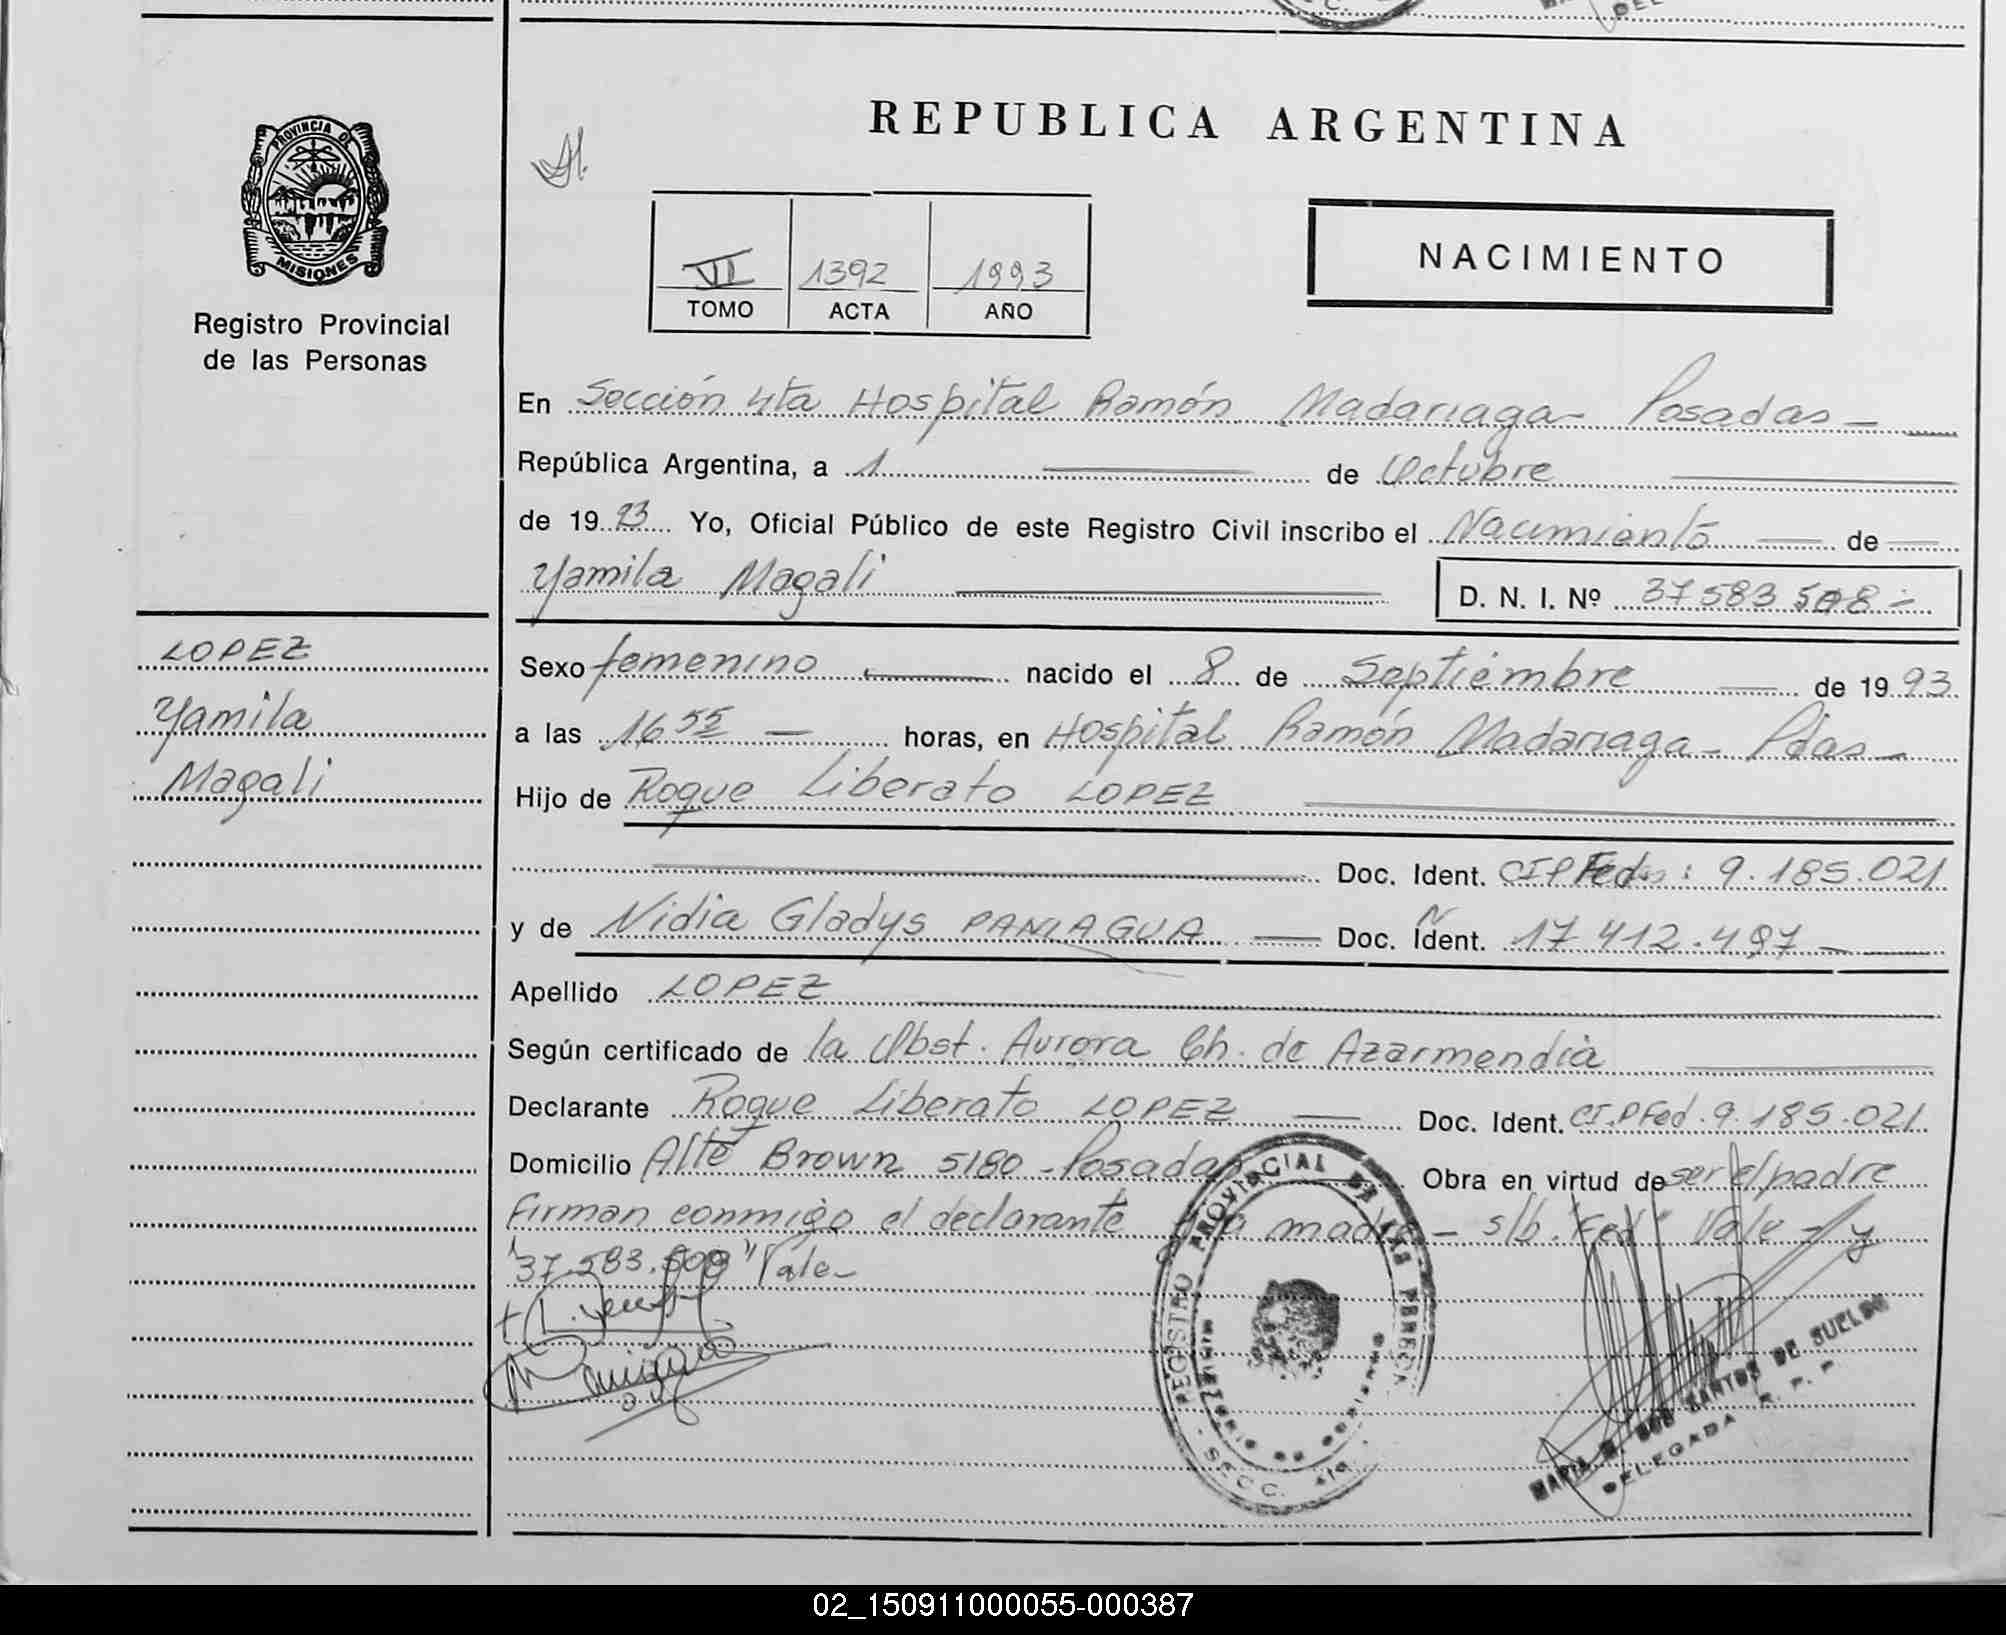 PROVINCIA DE
MISIONES
Registro Provincial
de las Personas
LOPEZ
Yamila
Magali
REPUBLICA ARGENTINA
VI 1392 1993
TOMO ACTA AÑO
NACIMIENTO
En Sección 4ta Hospital Ramón Madariaga - Posadas -
República Argentina, a 1 de Octubre
de 1993 Yo, Oficial Público de este Registro Civil inscribo el Nacimiento de
Yamila Magali D. N. I. Nº 37583508 -
Sexo femenino nacido el 8 de Septiembre de 1993
a las 16 55 horas, en Hospital Ramón Madariaga - Pdas -
Hijo de Roque Liberato LOPEZ
Doc. Ident. CIPFed : 9.185.021
y de Nidia Gladys PANIAGUA Doc. Ident. Nº 17 412.497
Apellido LOPEZ
Según certificado de la Obst. Aurora Ch. de Azarmendia
Declarante Roque Liberato LOPEZ Doc. Ident. CI.PFed. 9.185.021
Domicilio Alte Brown 5180 - Posadas Obra en virtud de ser el padre
Firman conmigo el declarante y la madre - s/b. "Fed" Vale - y
"37.583.508" Vale -
REGISTRO PROVINCIAL DE LAS PERSONAS
MISIONES
SECC. 4ta
MARIA DOS SANTOS DE SUELDO
DELEGADA R. P. P.
02_150911000055-000387